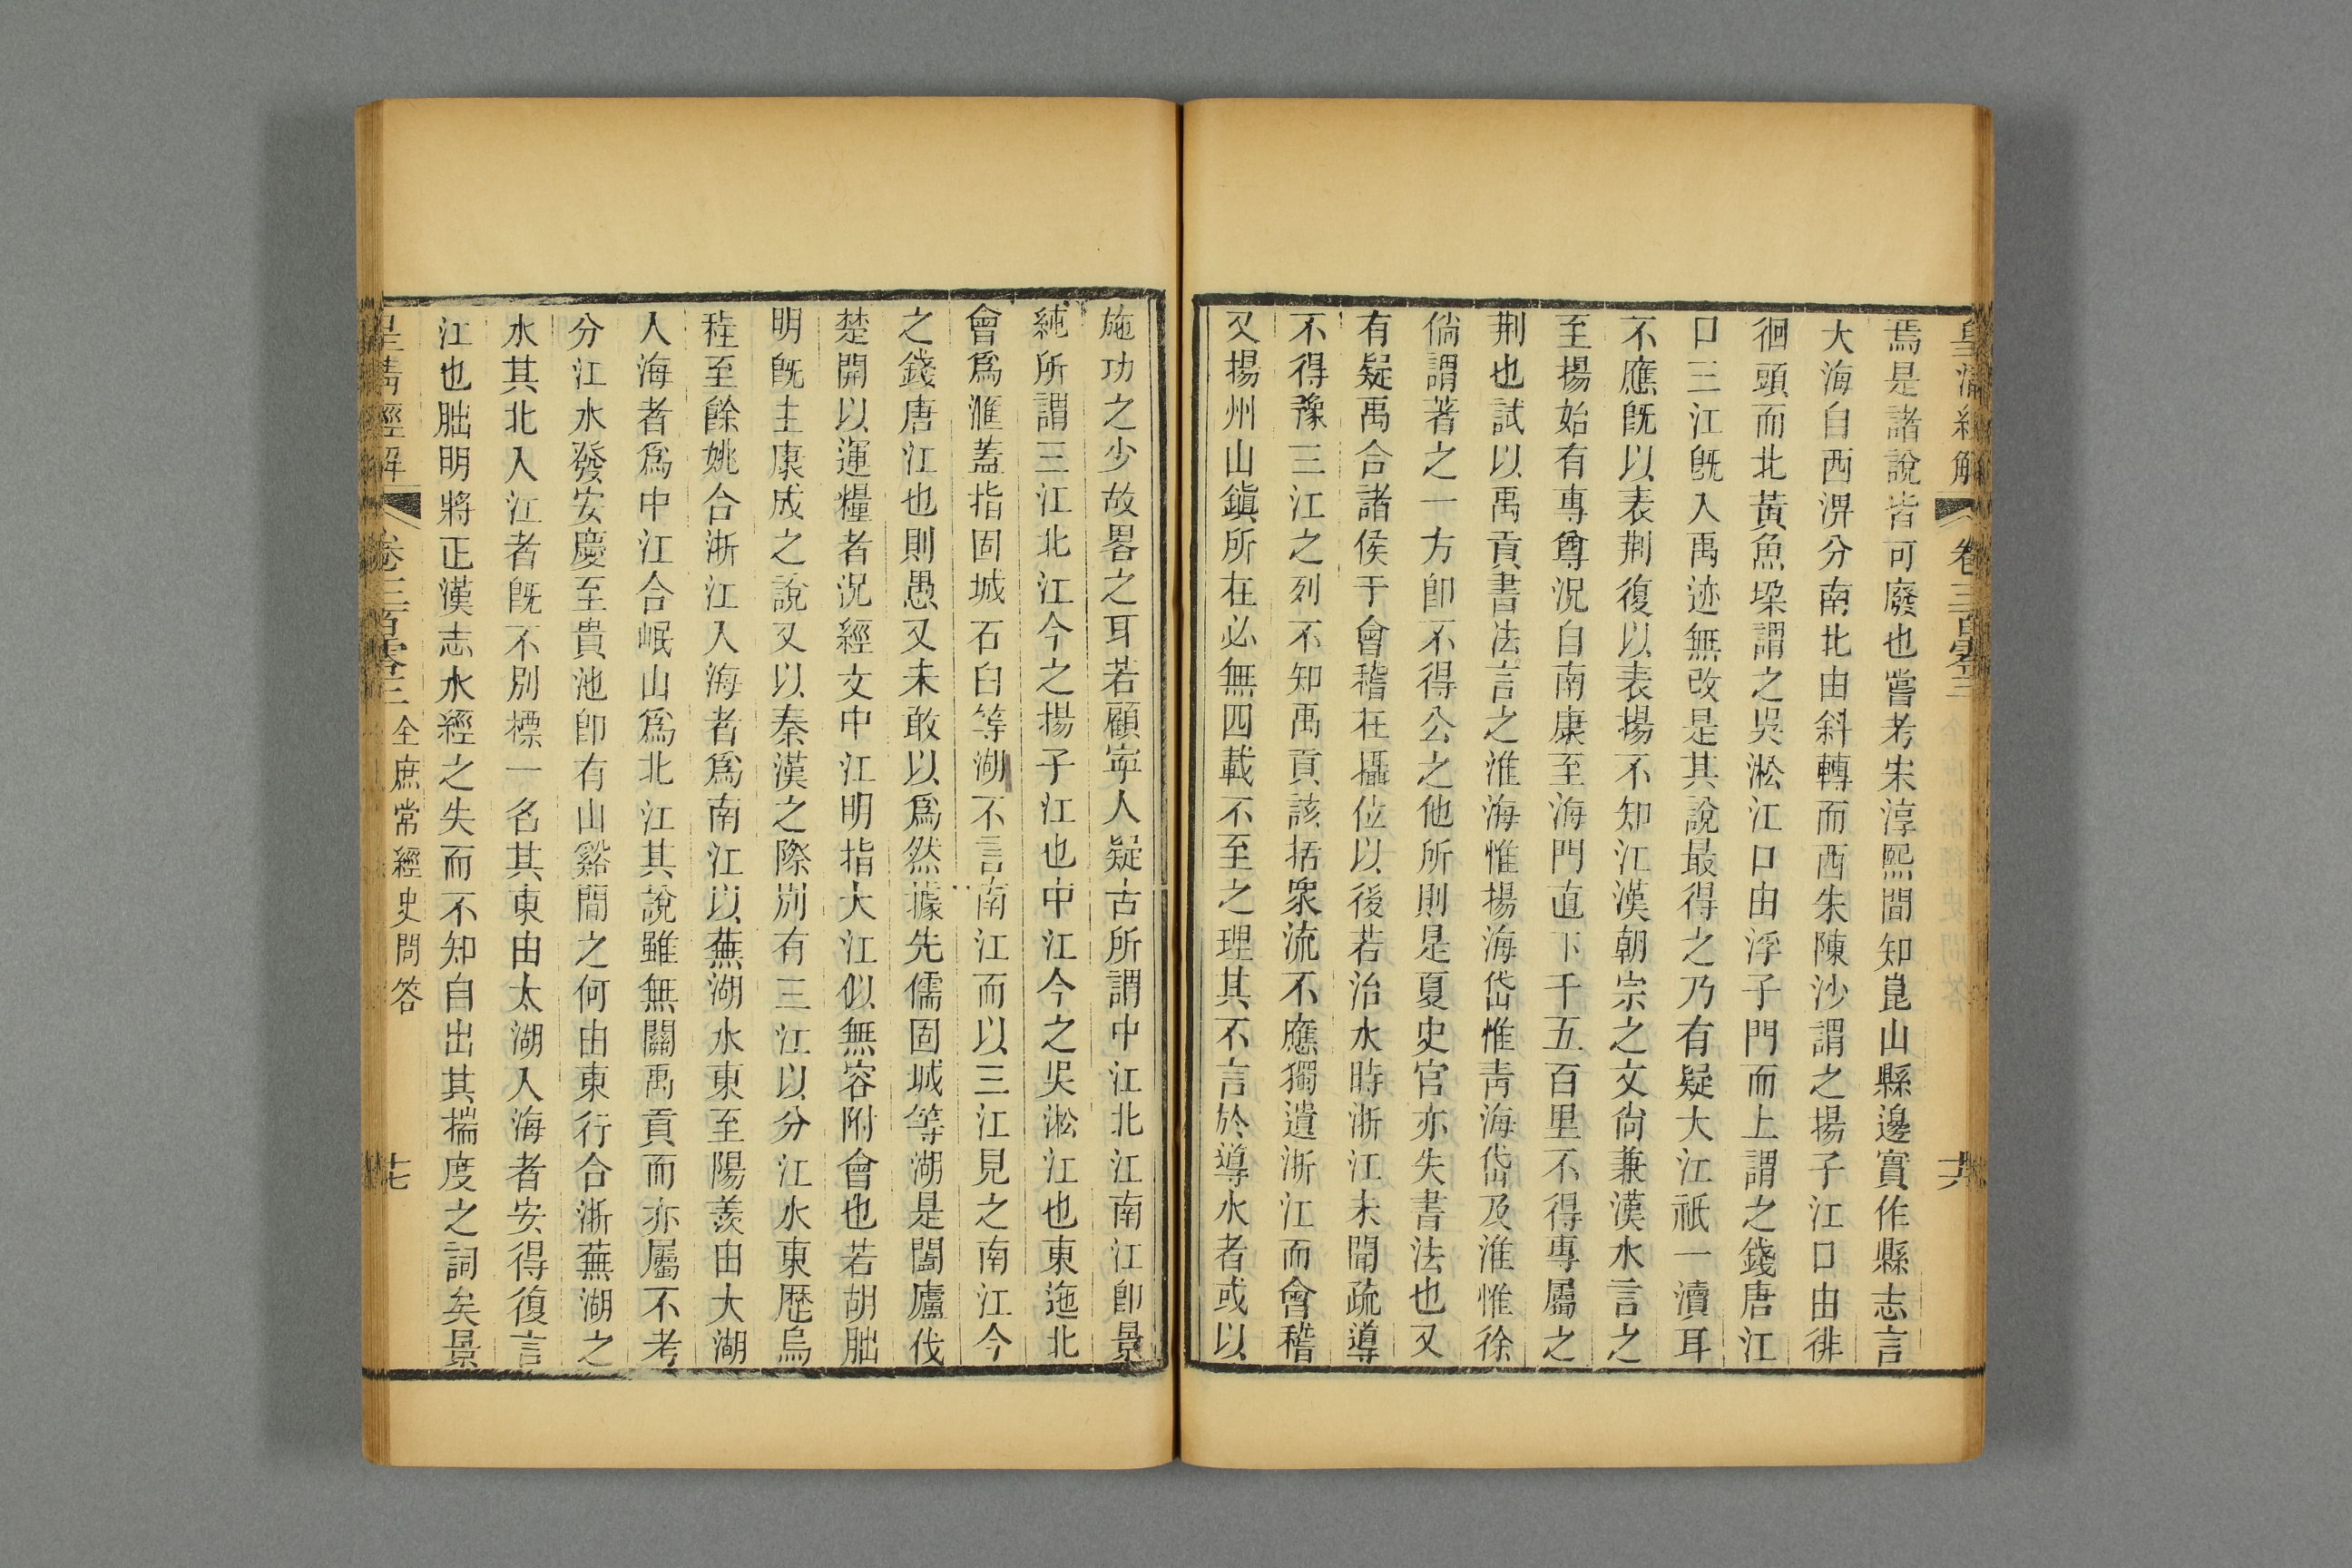 皇清經解 卷三百零三 六
焉是諸說皆可廢也嘗考宋淳熙間知崑山縣邊實作縣志言
大海自西㳌分南北由斜轉而西朱陳沙謂之揚子江口由徘
徊頭而北黃魚垜謂之吳淞江口由浮子門而上謂之錢唐江
口三江旣入禹迹無改是其說最得之乃有疑大江祇一瀆耳
不應旣以表荆復以表揚不知江漢朝宗之文尙兼漢水言之
至揚始有專尊況自南康至海門直下千五百里不得專屬之
荆也試以禹貢書法言之淮海惟揚海岱惟靑海岱及淮惟徐
倘謂著之一方卽不得公之他所則是夏史官亦失書法也又
有疑禹合諸侯于會稽在攝位以後若治水時浙江未聞疏導
不得豫三江之列不知禹貢該括衆流不應獨遺浙江而會稽
又揚州山鎭所在必無四載不至之理其不言於導水者或以
施功之少故畧之耳若顧寧人疑古所謂中江北江南江卽景
純所謂三江北江今之揚子江也中江今之吳淞江也東迤北
會爲滙蓋指固城石臼等湖不言南江而以三江見之南江今
之錢唐江也則愚又未敢以爲然據先儒固城等湖是闔廬伐
楚開以運糧者況經文中江明指大江似無容附會也若胡朏
明旣主康成之說又以秦漢之際别有三江以分江水東歷烏
程至餘姚合浙江入海者爲南江以蕪湖水東至陽羨由大湖
入海者爲中江合岷山爲北江其說雖無關禹貢而亦屬不考
分江水發安慶至貴池卽有山谿間之何由東行合浙蕪湖之
水其北入江者旣不別標一名其東由太湖入海者安得復言
江也朏明將正漢志水經之失而不知自出其揣度之詞矣景
皇清經解 卷三百零三 全庶常經史問答 七